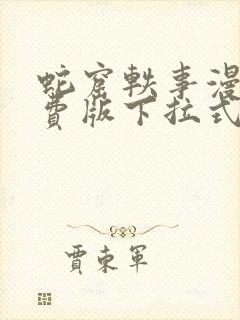 蛇窟軼事漫
费版下拉式
賈東軍